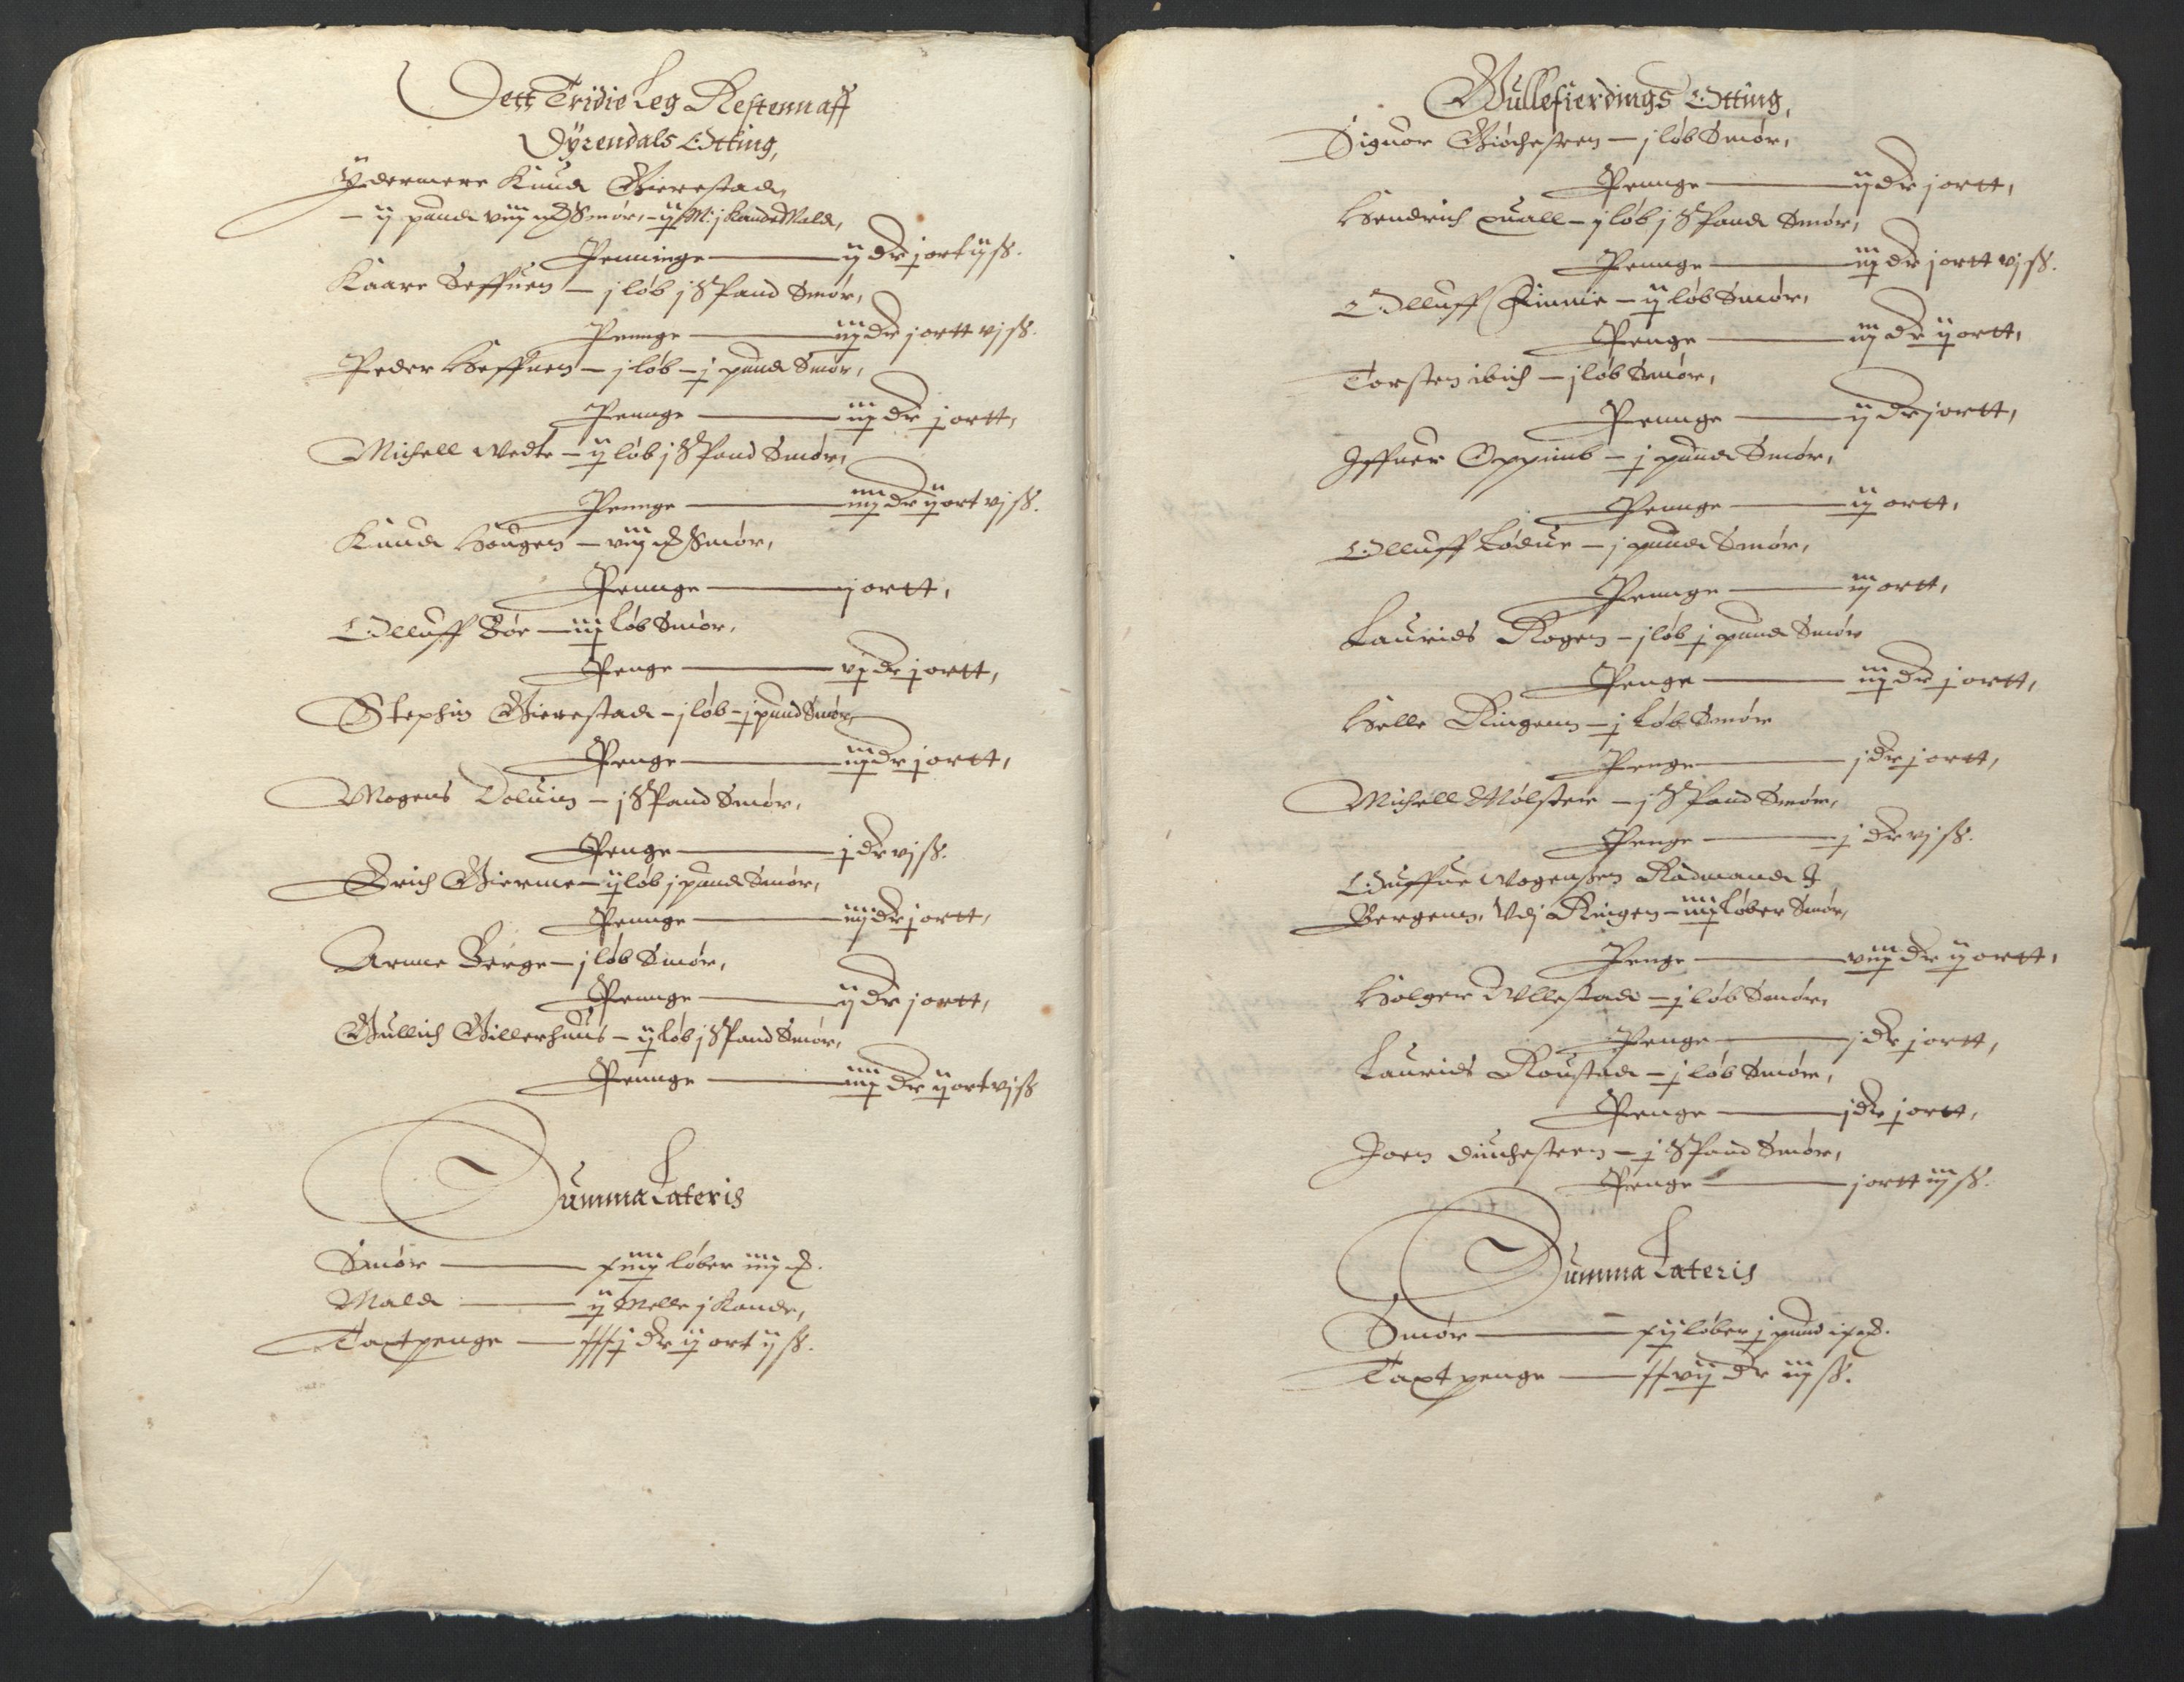 Dett Tridie Leg Restenn aff
Dyrendals Otting,
Ydermere Knud Gierestad,
— ij pund viij mk Smør, – ij M: j Kande Mald,
Penninge — ij dr j ort ij ß.
Kaare Seffuen — j løb j Spand Smør,
Pennge — iij dr j ortt vj ß.
Peder Heffuen — j løb – j pund Smør,
Pennge — iij dr j ortt,
Michell Wedte — ij løb j Spand Smør,
Pennge — iiij dr ij ort vj ß.
Knud Hougen — viij mk Smør,
Pennge — j ortt,
Olluff Bør — iij løb Smør,
Penge — vj dr j ortt,
Stephin Gierestad – j løb – j pund Smør,
Penge — iij dr j ortt,
Mogens Doluin — j Spand Smør,
Penge — j dr vj ß.
Erich Gierme — ij løb j pund Smør,
Pennge — iiij dr j ortt,
Arnne Berge — j løb Smør,
Pennge — ij dr j ortt,
Gullich Gillerhuus — ij løb j Spand Smør,
Pennge — iiij dr ij ort vj ß
Summa Lateris
Smør — xiiij løber iiij mk.
Mald — ij Melle j Kande,
Taxtpenge — xxxj dr ij ort ij ß.
Gullefierdings Otting,
Siguor Giøchestren — j løb Smør,
Pennge — ij dr j ortt,
Hendrich Quall — j løb j Spand Smør,
Pennge — iij dr j ortt vj ß.
Olluff Finnie — ij løb Smør,
Penge — iij dr ij ortt,
Torsten ibid — j løb Smør,
Pennge — ij dr j ortt,
Iffuer Oppimb — j pund Smør,
Pennge — ij ortt,
Olluff Lødue — j pund Smør,
Pennge — iij ortt,
Laurids Rogen — j løb j pund Smør
Penge — iij dr j ortt,
Helle Ringenn — j Løb Smør
Penge — j dr j ortt,
Michell Mølster — j Spand Smør,
Penge — j dr vj ß.
Mogensen Radmand I
Bergenn, Vdj Ringen — iiij Løber Smør,
Penge — viij dr ij ortt,
Holger Ullestad — j løb Smør,
Penge — j dr j ortt,
Laurids Roustad — j løb Smør,
Penge — j dr j ortt,
Joen Diuchestren — j Spand Smør,
Penge — j ortt iij ß.
Summa Lateris
Smør — løber j pund
Taxt penge — xxvij dr iij ß.